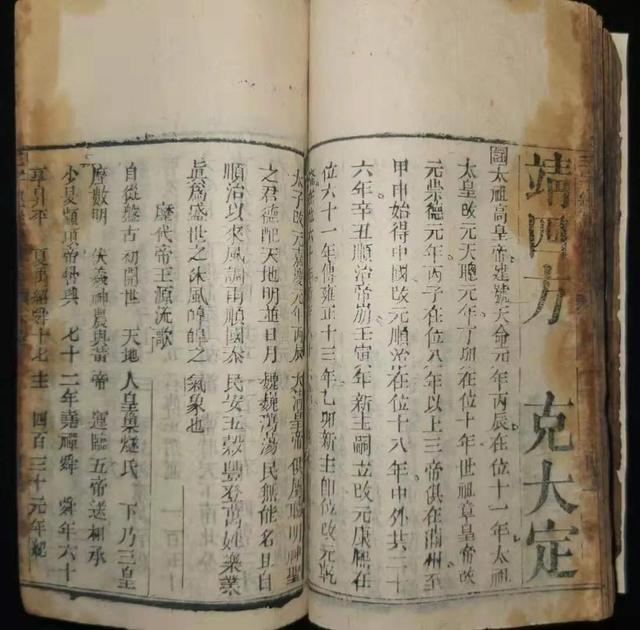 靖四方 克大定
太祖高皇帝建號天命元年丙辰在位十一年太祖
太皇改元天聰元年丁卯在位十年世祖章皇帝改
元崇德元年丙子在位八年以上三帝俱在滿州至
甲申始得中國改元順治在位十八年中外共二十
六年辛丑順治帝崩壬寅年新主嗣立改元康熙在
位六十一年傳雍正十三年乙卯新主即位改元乾
太子改元嘉慶元年丙辰
之君德配天地明並日月巍巍蕩蕩民無能名且自
順治以來風調雨順國泰民安五穀豐登萬姓樂業
眞爲盛世之休風皥皥之氣象也
歷代帝王源流歌
自從盤古初開世 天地人皇巢燧氏 下乃三皇
摩數明 伏羲神農與黃帝 運臨五帝遞相承
少昊顓頊帝嚳與 七十二年堯禪舜 舜年六十
享昇平 夏禹紹舜十七主 四百三十元年紀